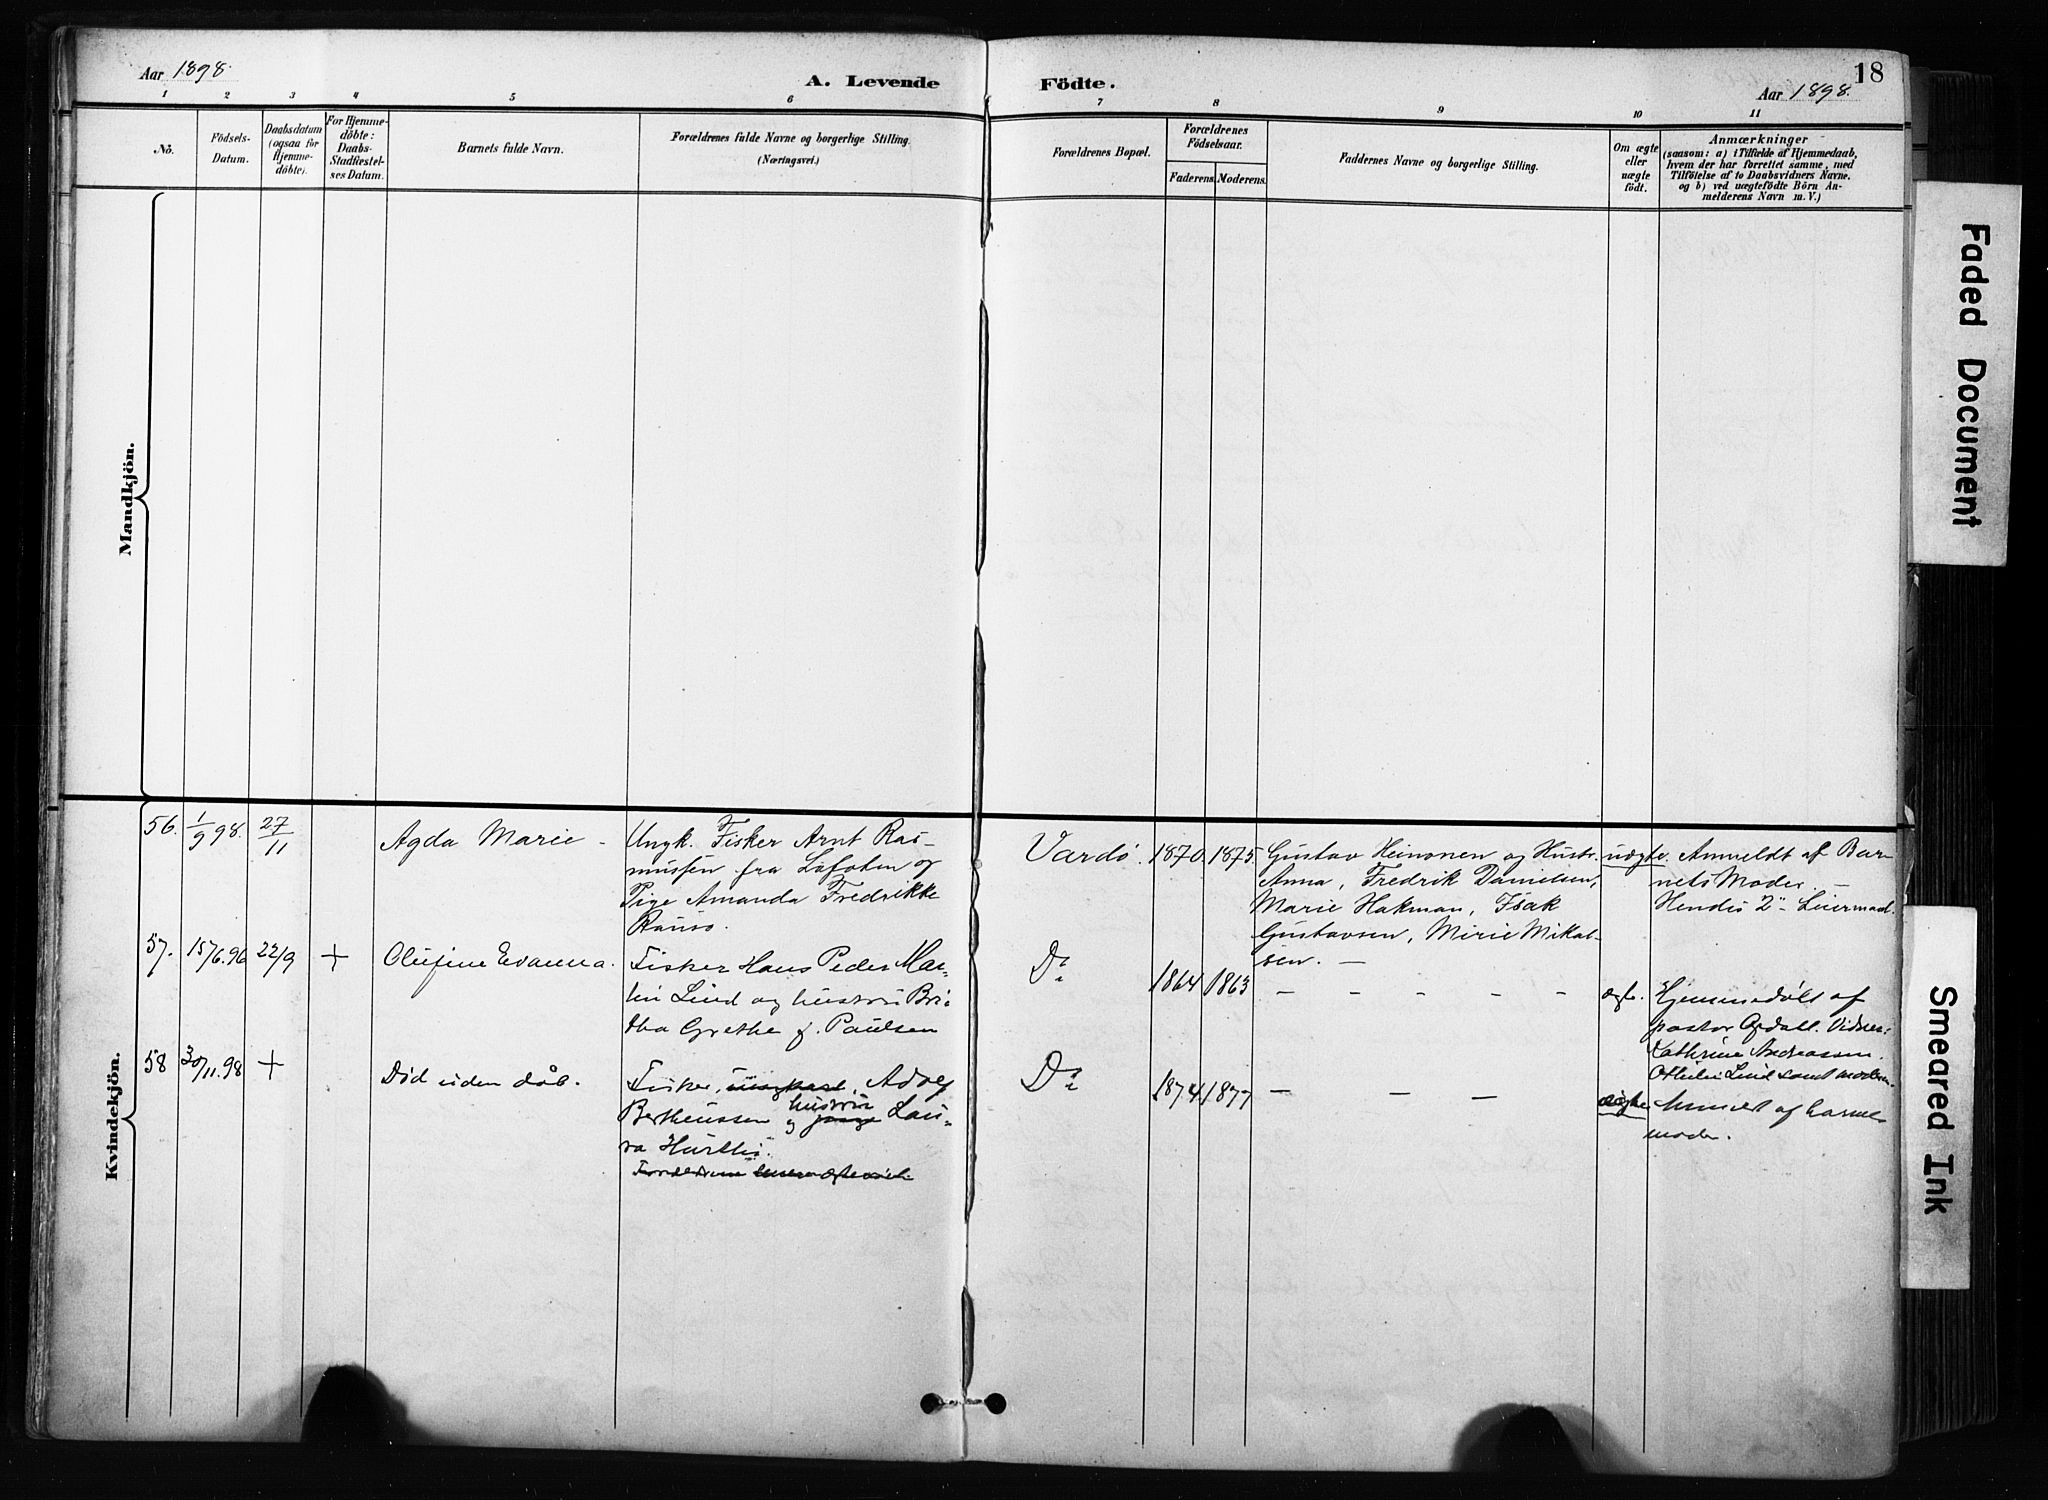 Aar 1898.
A. Levende Födte.
18
Aar 1898.
1 2 3 4 5 6 7 8 9 10 11
No.
Födsels-
Datum.
Daabsdatum
(ogsaa for
Hjemme-
döbte).
For Hjemme-
döbte:
Daabs-
Stadfæstel-
ses Datum.
Barnets fulde Navn.
Forældrenes fulde Navne og borgerlige Stilling.
(Næringsvei.)
Forældrenes Bopæl.
Forældrenes
Födselsaar.
Faderens. Moderens.
Faddernes Navne og borgerlige Stilling.
Om ægte
eller
uægte
födt.
Anmærkninger
(saasom: a) i Tilfælde af Hjemmedaab,
hvem der har forrettet samme, med
Tilföielse af to Daabsvidners Navne.
og b) ved uægtefödte Börn An-
melderens Navn m. V.)
Mandkjön.
Kvindekjön.
56. 1/9 98. 27/11
Agda Marie -
Ungk. Fisker Arnt Ras-
mussen fra Lofoten og
Pige Amanda Fredrikke
Vardö. 1870. 1875.
Gustav Heinonen og Hustr.
Anna, Fredrik Danielsen,
Marie Hakman, Isak
Gustavsen, Mirie Mikal-
sen. -
uægte.
Anmeldt af Bar-
nets Moder. -
Hendes 2det Leiermaal.
57. 15/6.96 22/9 +
Olufine Evanna.
Fisker Hans Peder Mar-
tin Lind og hustru Bri-
tha Grethe f. Paulsen
Do 1864 1863 - - - - -
ægte.
Hjemmedöbt af
pastor Opdall. Vidner:
Kathrine Andreassen.
Othilie Lind samt moderen.
58 30/11.98 +
Död uden dåb.
Fisker, ungkarl, Adolf
Bertheussen og pige hustru Lau-
ra
Do 1874 1877 - - -
ægte
Anmeldt af barnets
moder.
Faded Document
Smeared Ink